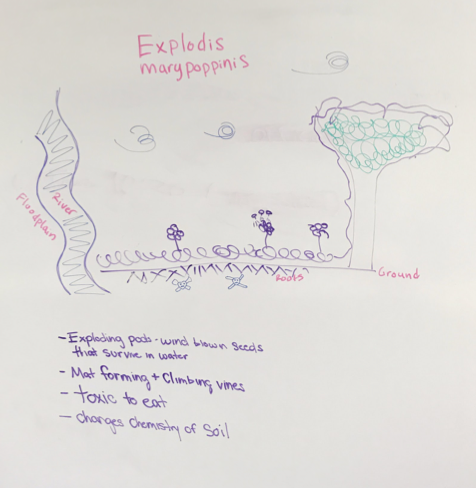 Explodis
marypoppinis
River
Floodplain
Roots
Ground
- Exploding pods - wind blown seeds
that survive in water
- Mat forming + Climbing vines
- toxic to eat
- changes chemistry of Soil